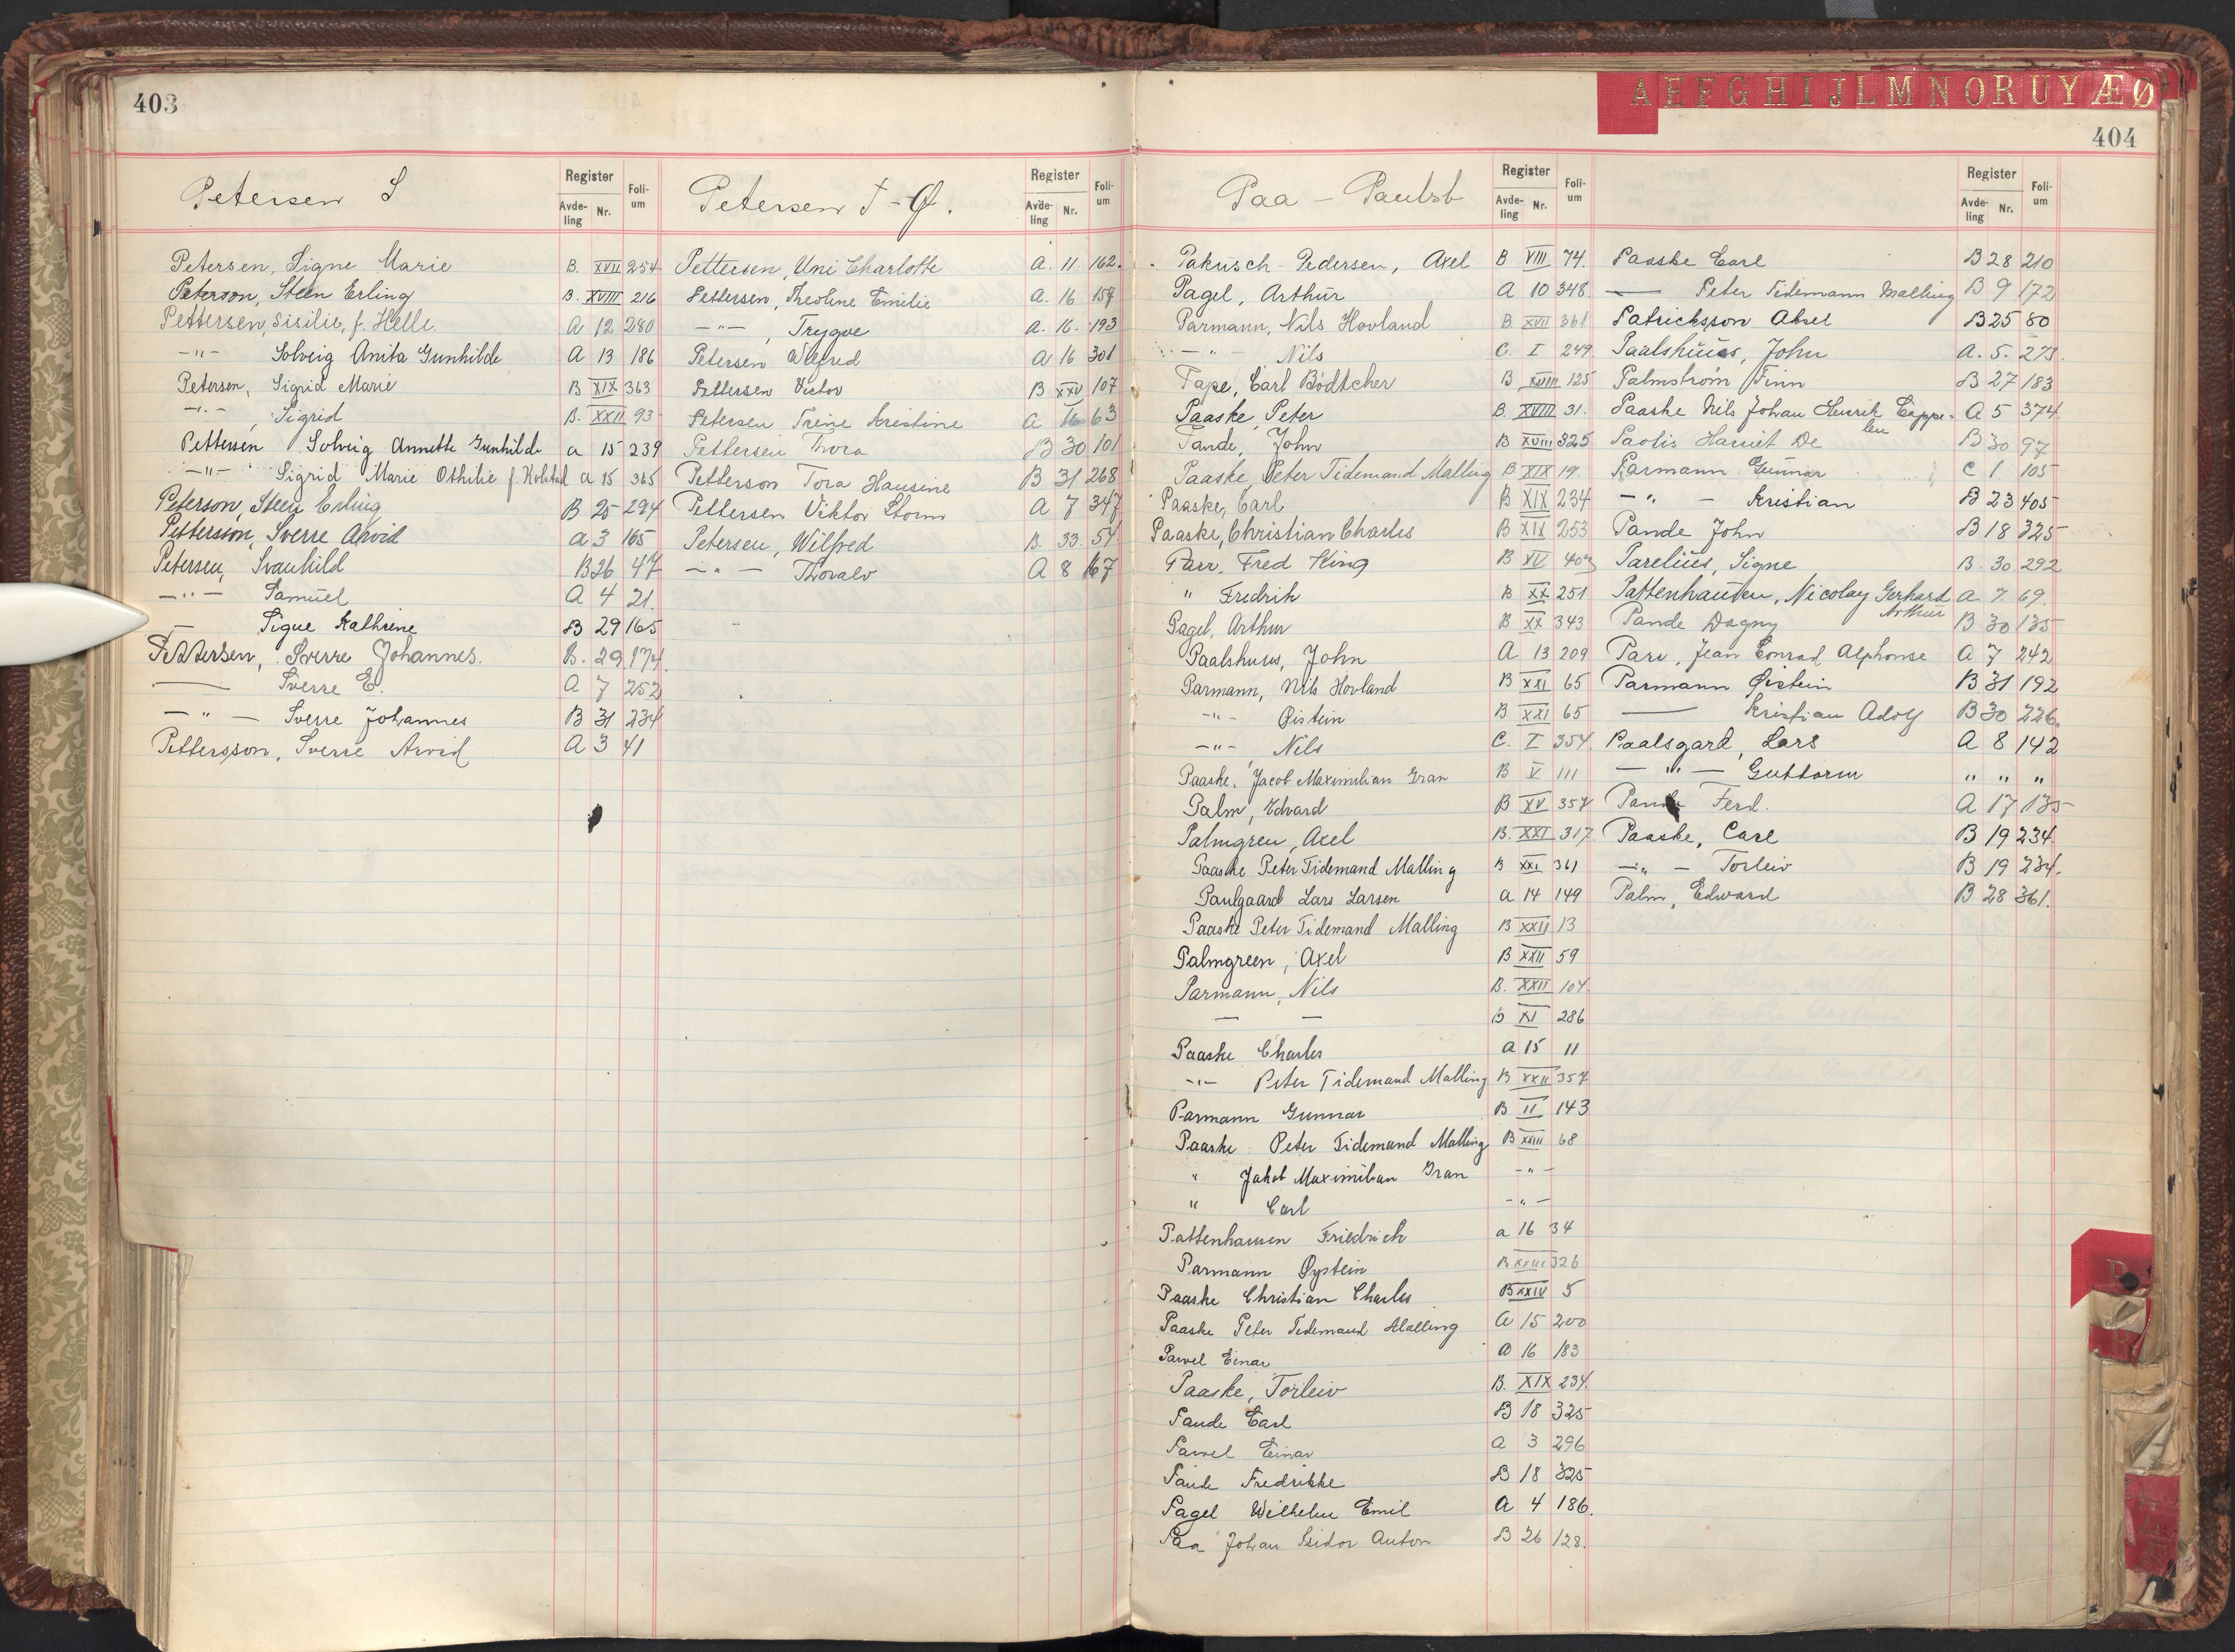 403
Petersen S
Register
Avde-
ling
Nr.
Foli-
um
Petersen, Signe Marie B. XVII 254
Peterson, Steen Erling B. XVIII 216
Pettersen, Sisilie, f. Helle. A 12 280
-"- Solveig Anita Gunhilde A 13 186
Petersen, Sigrid Marie B XIX 363
-"- , Sigrid B. XXII 93
Pettersen Solveig Annette Gunhilde a 15 239
-"- Sigrid Marie Othilie f. Holstad a 15 365
Peterson, Steen Erling B 25 294
Pettersson, Sverre Arvid a 3 165
Petersen, Svanhild B26 47
-"- Samuel A 4 21.
— Signe Kathrine B 29 165
Pettersen, Sverre Johannes. B. 29 174
— Sverre E. A 7 252
-"- Sverre Johannes B 31 234
Pettersson, Sverre Arvid A 3 41
Petersen T-Ø.
Register
Avde-
ling
Nr.
Foli-
um
Pettersen, Uni Charlotte A. 11 162.
Pettersen, Theoline Emilie A. 16 157
-"- , Trygve A. 16. 193
Petersen Alfred a 16 301
Pettersen Victor B XXV 107
Petersen Trine Kristine a 16 63
Pettersen Thora B 30 101
Petterson Tora Hansine B 31 268
Pettersen Viktor Storm A 7 347
Petersen, Wilfred B. 33. 54
-"- Thoralv A 8 167
AEFGHIJLMNORUYÆØ
404
Paa - Paulsb
Register
Avde-
ling
Nr.
Foli-
um
Pakusch-Pedersen, Axel B VIII 74.
Pagel, Arthur A 10 348
Parmann, Nils Hovland B XVII 361
-"- Nils C. I 249
Pape, Carl Bödtcher B XVIII 125
Paaske, Peter B. XVIII 31.
Pande, John B XVIII 325
Paaske, Peter Tidemand Malling B XIX 19.
Paaske, Carl B XIX 234
Paaske, Christian Charles B XIX 253
Parr, Fred King B XV 403
" Fredrik B XX 251
Pagel, Arthur B XX 343
Paalshuus, John A 13 209
Parmann, Nils Hovland B XXI 65
-"- Øistein B XXI 65
-"- Nils C. I 354
Paaske, Jacob Maximilian Gran B V 111
Palm, Edvard B XV 357
Palmgren, Axel B. XXI 317
Paaske Peter Tidemand Malling B XXI 361
Paulgaard Lars Larsen a 14 149
Paaske Peter Tidemand Malling B XXII 13
Palmgreen, Axel B XXII 59
Parmann, Nils B. XXII 104.
— — B XI 286
Paaske Charles a 15 11
-"- Peter Tidemand Malling B XXII 357
Parmann Gunnar B II 143
Paaske Peter Tidemand Malling B XXIII 68
" Jakob Maximilian Gran -"-
" Carl -"-
Pattenhausen Friedrich a 16 34
Parmann Øystein B XXIII 326
Paaske Christian Charles B XXIV 5
Paaske Peter Tidemand Malling a 15 200
Pawel Einar a 16 183
Paaske, Torleiv B. XIX 234.
Pande Carl B 18 325
Pawel Einar a 3 296
Pande Fredrikke B 18 325
Pagel Wilhelm Emil A 4 186.
Paa Johan Isidor Anton B 26 128.
Register
Avde-
ling
Nr.
Foli-
um
Paaske Carl B 28 210
— Peter Tidemann Malling B 9 172
Patricksson Aksel B25 80
Paalshuus, John A. 5. 273.
Palmstrøm Finn B 27 183
Paaske Nils Johan Henrik Cappe- A 5 374
len
Paolis Harriet De B 30 97
Parmann Gunnar C 1 105
-"- Kristian B 23 405
Pande John B 18 325
Parelius, Signe B. 30 292
Pattenhausen, Nicolay Gerhard a 7. 69.
Arthur
Pande Dagny B 30 135
Pari, Jean Conrad Alphonse A 7 242
Parmann Øistein B 31 192
— Kristian Adolf B 30 226.
Paalsgard, Lars A 8 142
-"- Guttorm " " "
Pande Ferd. A 17 135
Paaske, Carl B 19 234.
-"- Torleiv B 19 234.
Palm, Edward B 28 361.
P